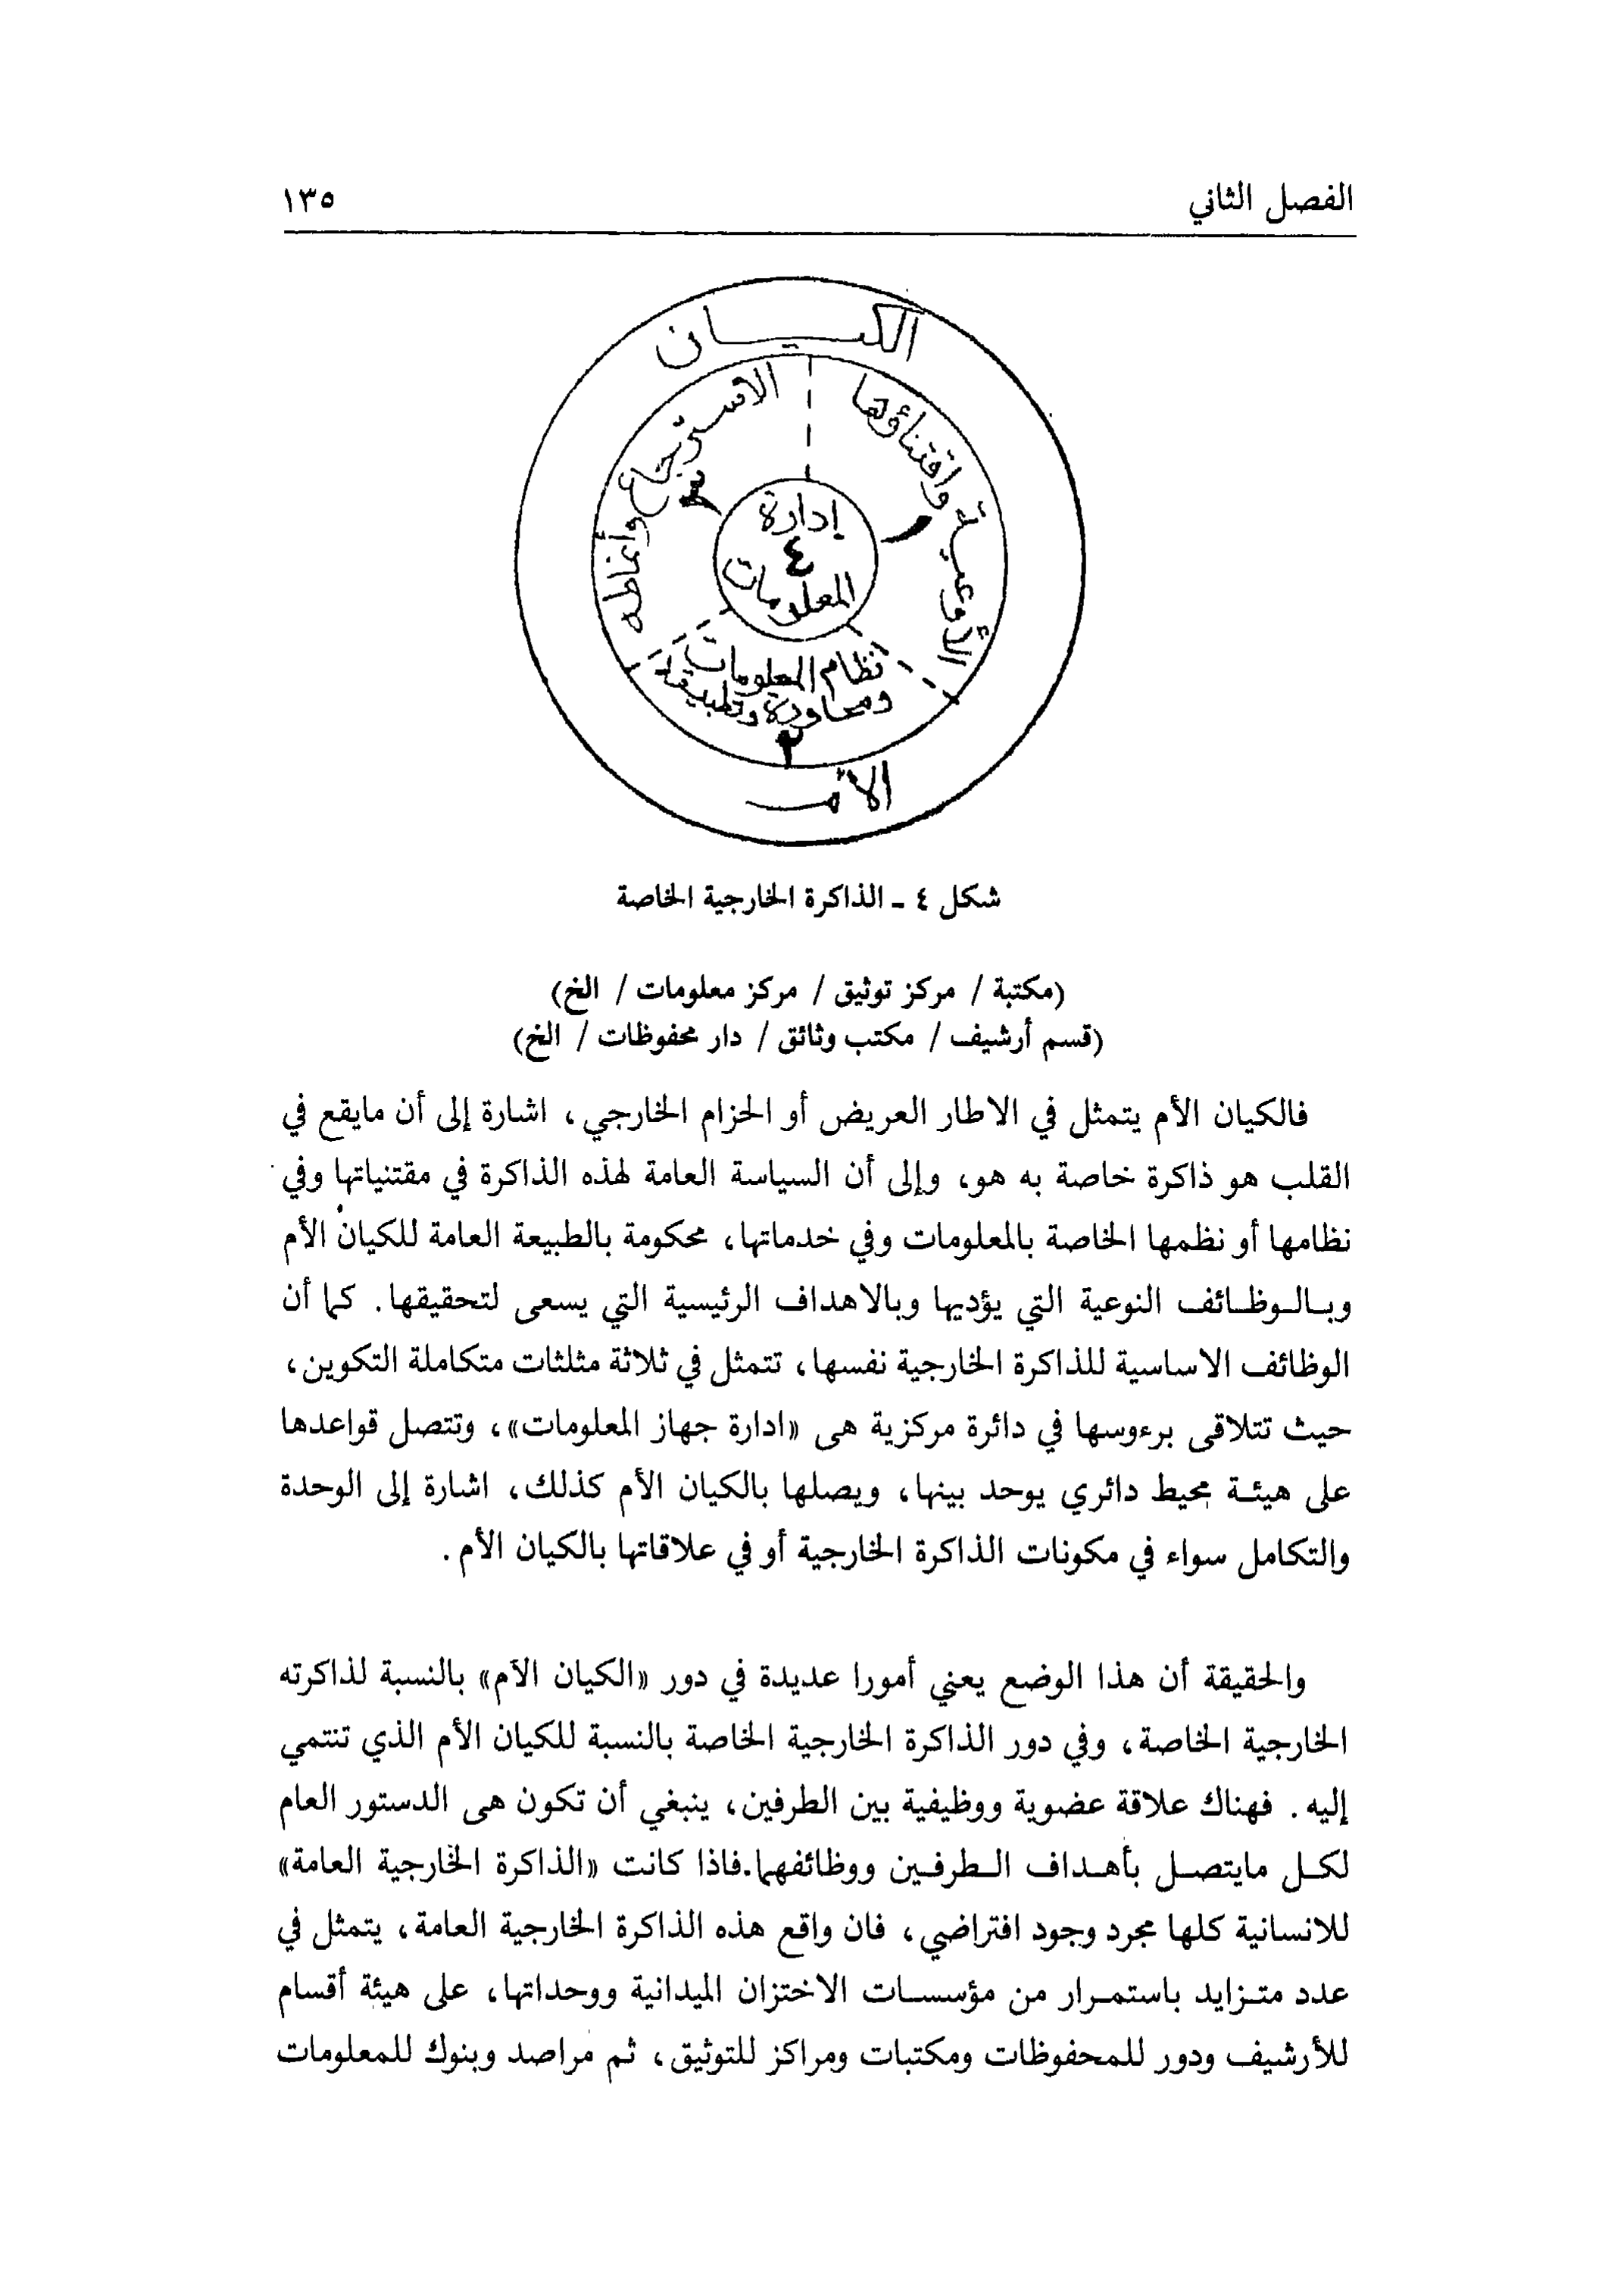 الفصل الثاني
١٣٥
الكيــان
الأوعيــة واقتناؤها
١
الاسترجاع وأنماطه
٣
إدارة
٤
المعلومات
نظام المعلومات
ومحاورة وتطبيقه
٢
الأم
شكل ٤ ـ الذاكرة الخارجية الخاصة
(مكتبة / مركز توثيق / مركز معلومات / الخ)
(قسم أرشيف / مكتب وثائق / دار محفوظات / الخ)
فالكيان الأم يتمثل في الاطار العريض أو الحزام الخارجي، اشارة إلى أن مايقع في
القلب هو ذاكرة خاصة به هو، وإلى أن السياسة العامة لهذه الذاكرة في مقتنياتها وفي
نظامها أو نظمها الخاصة بالمعلومات وفي خدماتها، محكومة بالطبيعة العامة للكيان الأم
وبـالـوظـائف النوعية التي يؤديها وبالاهداف الرئيسية التي يسعى لتحقيقها. كما أن
الوظائف الاساسية للذاكرة الخارجية نفسها، تتمثل في ثلاثة مثلثات متكاملة التكوين،
حيث تتلاقى برءوسها في دائرة مركزية هى «ادارة جهاز المعلومات»، وتتصل قواعدها
على هيئـة محيط دائري يوحد بينها، ويصلها بالكيان الأم كذلك، اشارة إلى الوحدة
والتكامل سواء في مكونات الذاكرة الخارجية أو في علاقاتها بالكيان الأم.
والحقيقة أن هذا الوضع يعني أمورا عديدة في دور «الكيان الآم» بالنسبة لذاكرته
الخارجية الخاصة، وفي دور الذاكرة الخارجية الخاصة بالنسبة للكيان الأم الذي تنتمي
إليه. فهناك علاقة عضوية ووظيفية بين الطرفين، ينبغي أن تكون هى الدستور العام
لكـل مايتصـل بأهـداف الـطرفـين ووظائفهما.فاذا كانت «الذاكرة الخارجية العامة»
للانسانية كلها مجرد وجود افتراضي، فان واقع هذه الذاكرة الخارجية العامة، يتمثل في
عدد متـزايد باستمـرار من مؤسسـات الاختزان الميدانية ووحداتها، على هيئة أقسام
للأرشيف ودور للمحفوظات ومكتبات ومراكز للتوثيق، ثم مراصد وبنوك للمعلومات